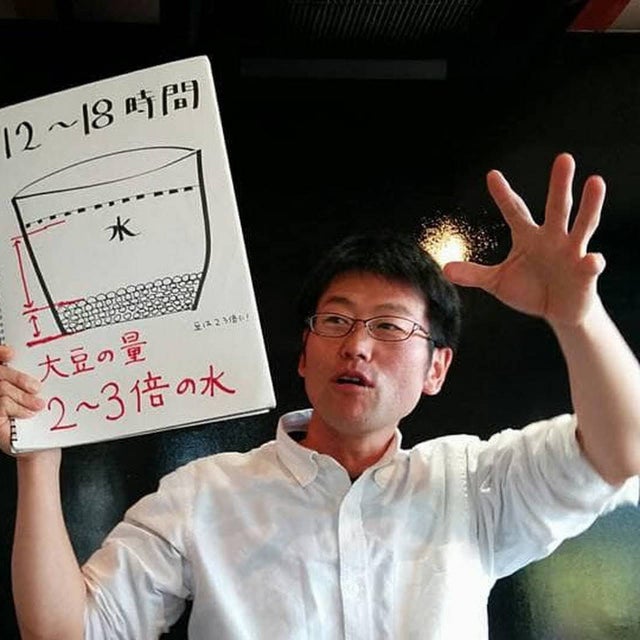 12～18時間
水
豆は2.3倍に!
大豆の量
2～3倍の水